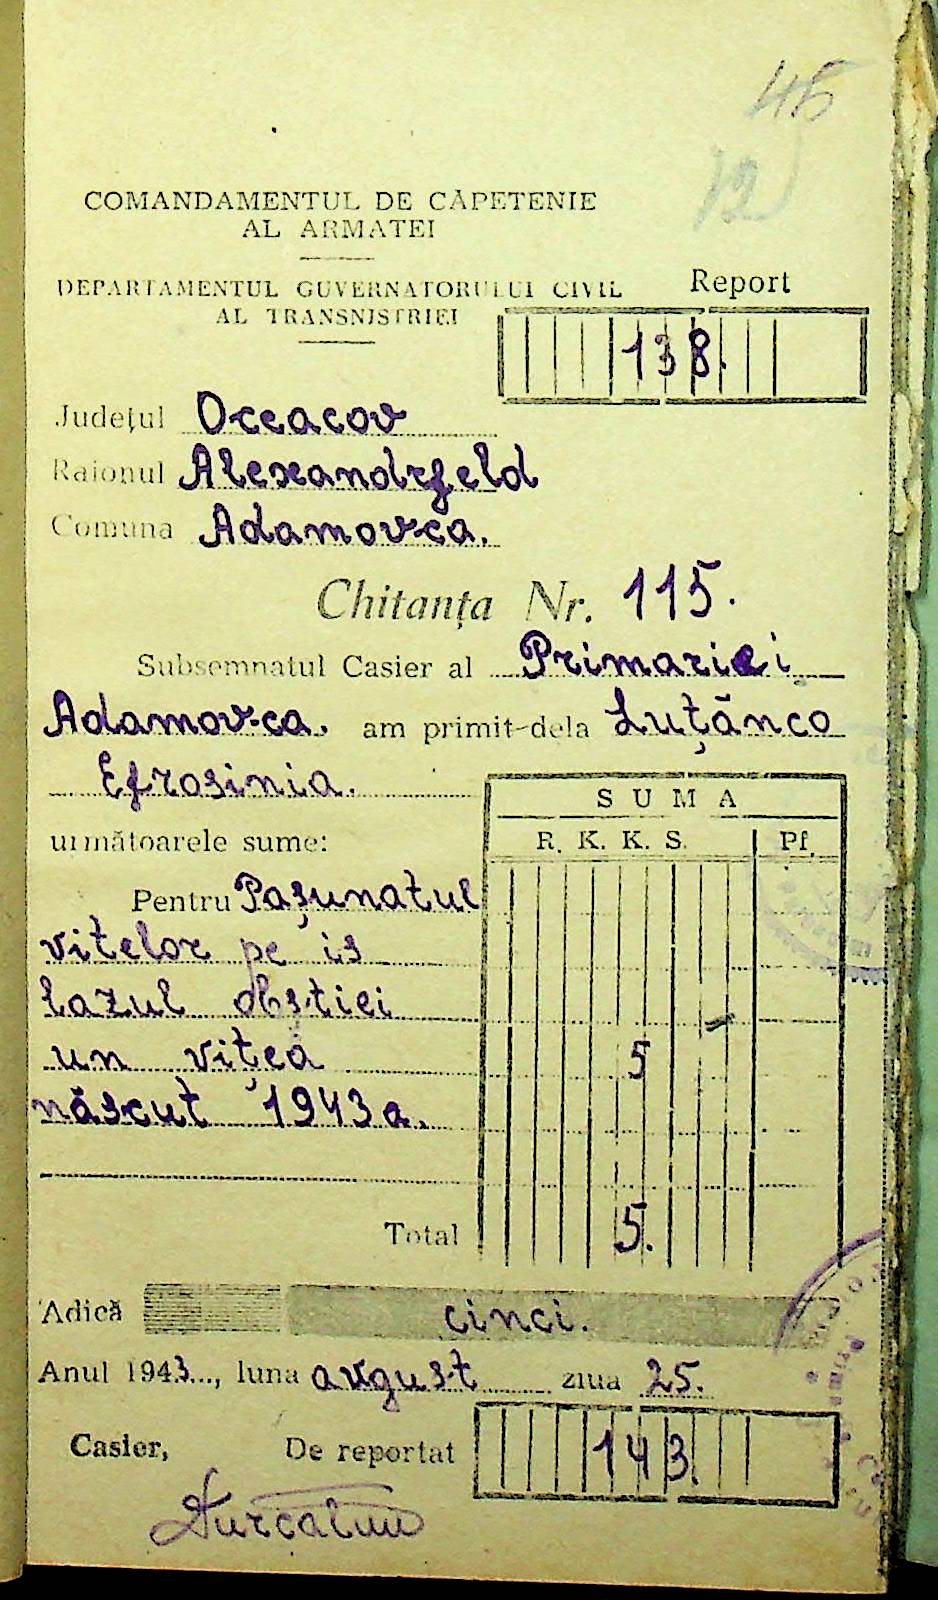 45
12
COMANDAMENTUL DE CĂPETENIE
AL ARMATEI
DEPARTAMENTUL GUVERNATORULUI CIVIL
AL TRANSNISTRIEI
Report
138.
Județul Oceacov
Raionul Alexandrfeld
Comuna Adamovca.
Chitanța Nr. 115.
Subsemnatul Casier al Primariei
Adamovca. am primit dela Luțănco
Efrosinia.
următoarele sume:
SUMA
R. K. K. S. Pf.
Pentru Pașunatul
vitelor pe is
lazul obstiei
un vițea 5
născut 1943 a.
Total 5.
Adică cinci.
Anul 1943..., luna avgust ziua 25.
Casier, De reportat 143.